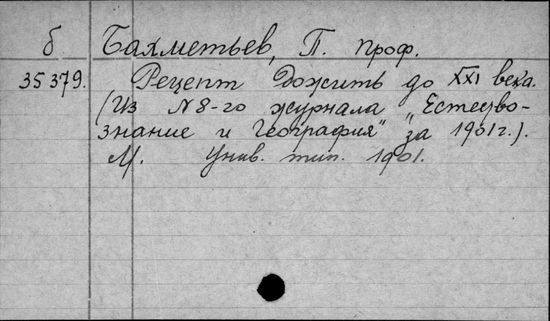 б Бахметьев, П. проф.
35379. Рецепт Дожить до XXI века.
(Из №8-го журнала „Естество-
знание и География" за 1901г.).
М. Унив. тип. 1901.